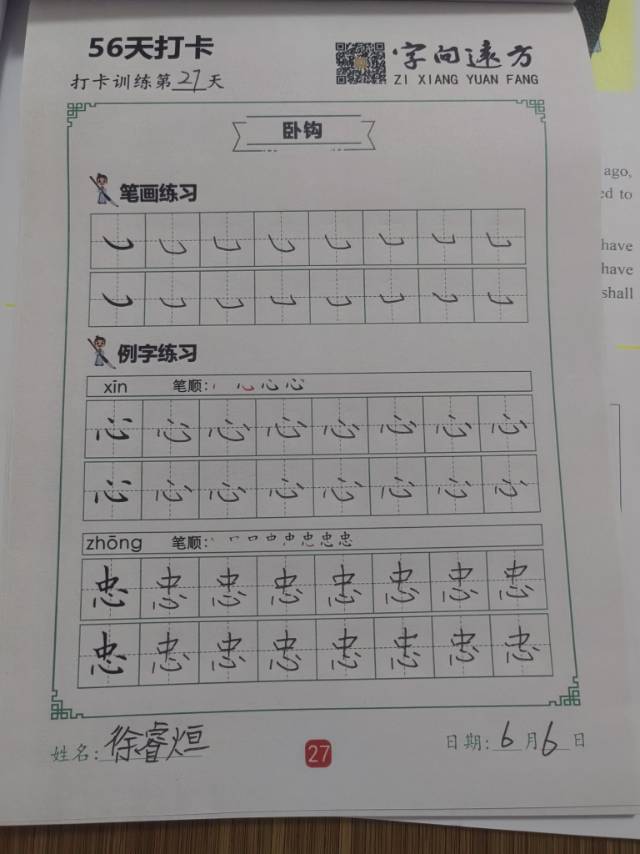 56天打卡
打卡训练第27天
字向远方
ZI XIANG YUAN FANG
卧钩
笔画练习
例字练习
xīn 笔顺:
心 心 心 心 心 心 心 心
心 心 心 心 心 心 心 心
zhōng 笔顺:
忠 忠 忠 忠 忠 忠 忠 忠
忠 忠 忠 忠 忠 忠 忠 忠
姓名:徐睿烜
27
日期:6月6日
ago,
ed to
have
have
shall